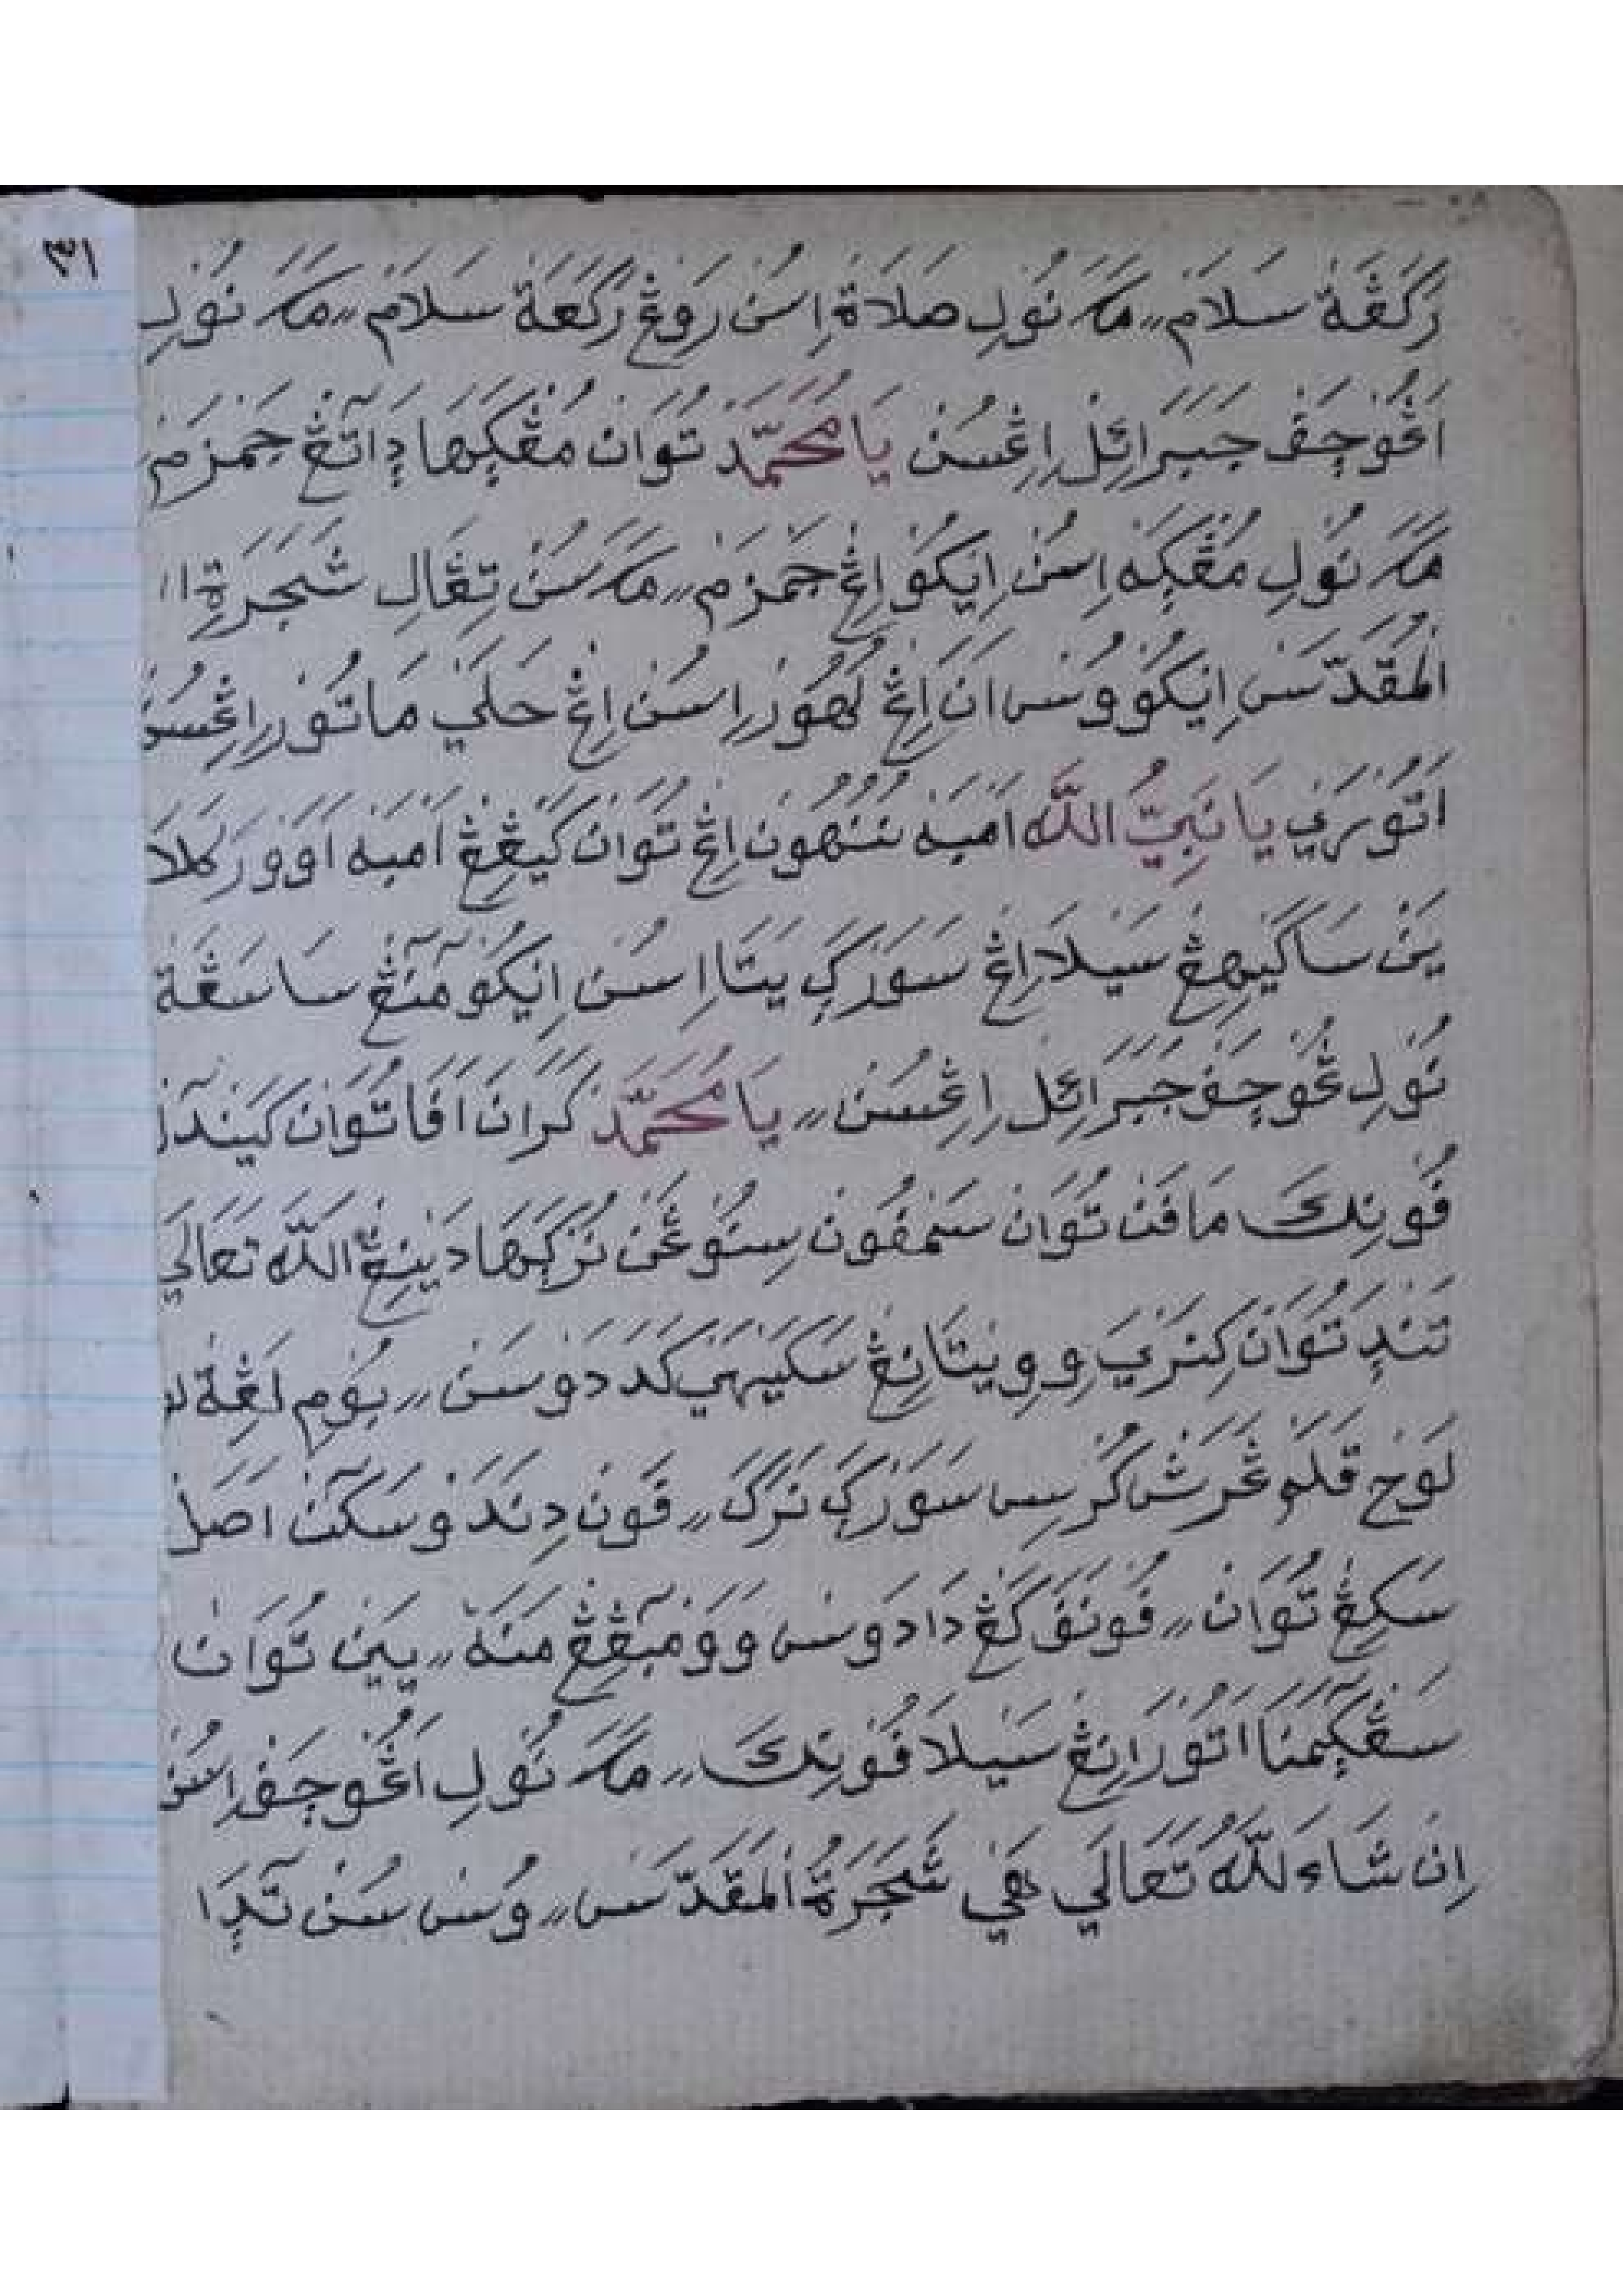 ٣١
رَكَڠَةْ سَلَامْ،، مَكَ نُولِ صَلَاةْ اِسُنْ رَوْڠْ رَكَعَةْ سَلَامْ،، مَكَ نُولِ
اَڠُوچَفْ جَبَرَائِلْ اِڠْسُنْ يَا مُحَمَّدْ تُوَانْ مُڠْكَهَا دٍاتَڠْ جَمْزَمْ
مَكَ نُولِ مُڠْكَهْ اِسُنْ اِيْكُو اِڠْ جَمْزَمْ،، مَكَ سُنْ تِڠَالِ شَجَرَةِ
الْمُقَدَّسْ اِيْكُو وُسْ انَ اِڠْ لُهُوْرْ اِسُنْ اِڠْ حَلَيْ مَاتُوْرْ اِڠْسُنْ
اَتُوْرَيْ يَا نَبِيُّ اللَّه اَمْبَهْ نُنُهُونْ اِڠْ تُوَانْ كَيْڠِڠْ اَمْبَهْ اَوَوْرْ كَلَا
يَنْ سَاكَيْهِڠْ سَيْلَا اِڠْ سَوَرْكِ يَتَا اِسُنْ اِيْكُو مَنَڠْ سَاسَڠَةْ
نُولِ ڠُوچَفْ جَبَرَائِلْ اِڠْسُنْ،، يَا مُحَمَّدْ كَرَانَ اَفَا تُوَانْ كَيْنْدَلْ
فُونِكَ مَافَنْ تُوَانْ سَمْفُونْ سِنُوڠَنْ نُرْكَهَا دَيْنِڠْ اللَّه تَعَالَي
تَنْدٍ تُوَانْ كِنَرْيَ وِوِيْتَانِڠْ سَكَيْهَيْ كَدَدَوْسَنْ،، بُوْمِ لَڠِةْ
لَوْحْ قَلَمْ عَرَشْ كُرْسِ سَوَرْكِ نَرَكَ،، فَوْنْ دِنَدَوْسَكَنْ اَصَلْ
سَكِڠْ تُوَانْ،، فُونَفَ كَڠْ دَادَوْسْ وَوَمْبَڠِڠْ مَنَهْ،، يَيْنْ تُوَانْ
سَڠْكَمْنَا اَتُوْرَانِڠْ سَيْلَا فُونِكَ،، مَكَ نُولِ اَڠُوچَفْ اِسُنْ
اِنْ شَاءَ لِلَّهُ تَعَالَي هَيْ شَجَرَةُ الْمُقَدَّسْ،، وُسْ سُنْ تَدٍا